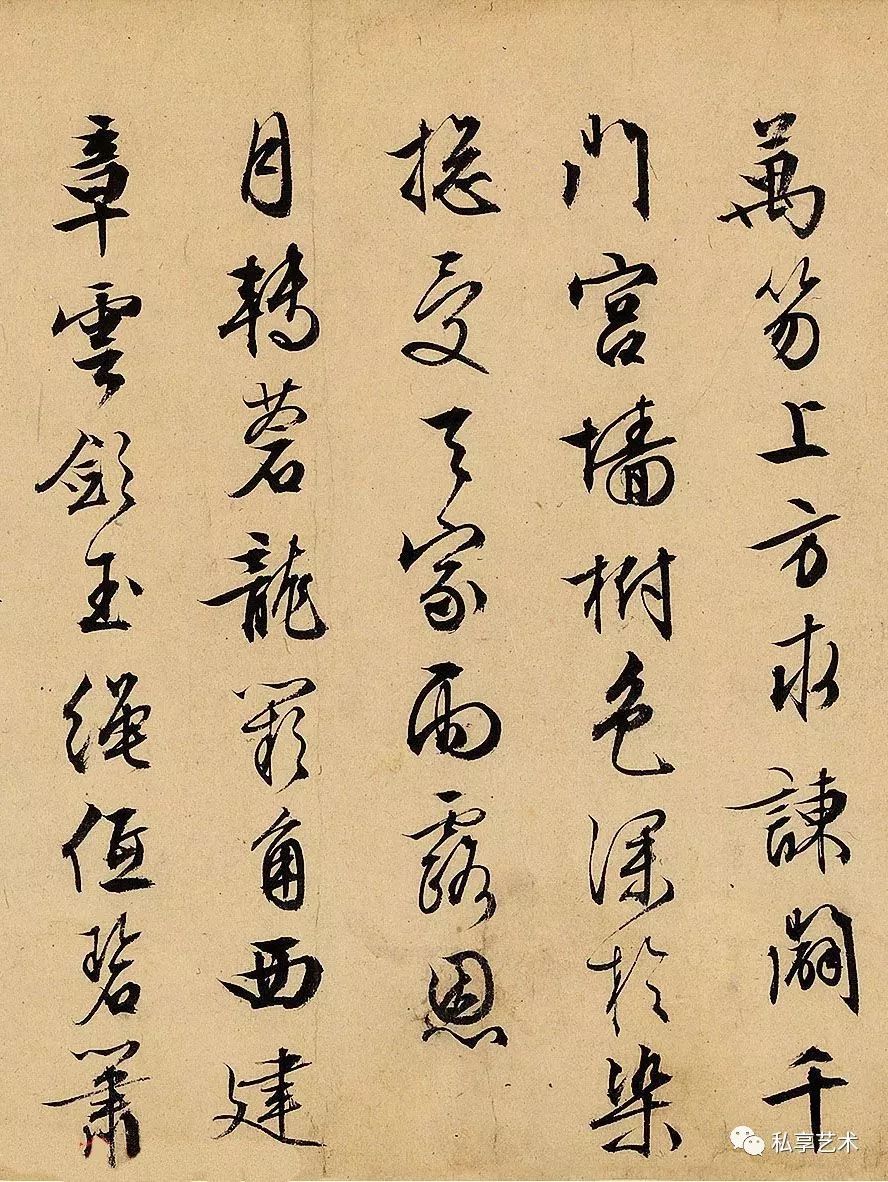 萬笏上方求諫闢千
門宮墻樹色深於染
揔受天家雨露恩
月轉蒼龍闕角西建
章雲斂玉繩低碧簫
私享艺术